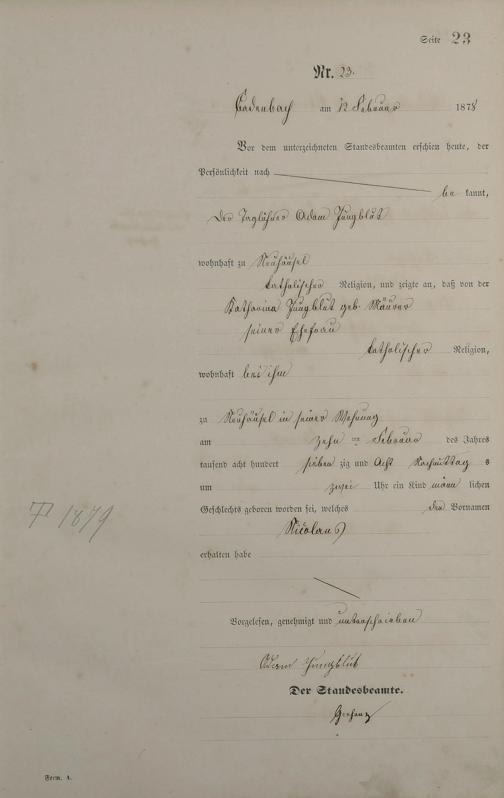 Seite 23
Nr. 23.
Cadenbach am 12 Februar 1878
Vor dem unterzeichneten Standesbeamten erschien heute, der
Persönlichkeit nach
be kannt,
der Taglöhner Adam Jungblut
wohnhaft zu Neuhäusel
katholischer Religion, und zeigte an, daß von der
Katharina Jungblut geb. Maurer
seiner Ehefrau
katholischer Religion,
wohnhaft bei ihm
zu Neuhäusel in seiner Wohnung
am zehn ten Februar des Jahres
tausend acht hundert sieben zig und Acht Nachmittag s
um zwei Uhr ein Kind männ lichen
Geschlechts geboren worden sei, welches den Vornamen
Nicolaus
erhalten habe
Vorgelesen, genehmigt und unterschrieben
Adam Jungblut
Der Standesbeamte.
1879
Form. A.